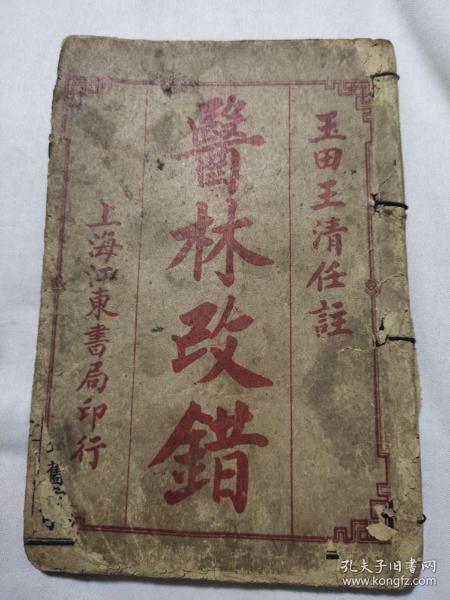 玉田王清任註
醫林改錯
上海江東書局印行
舊
孔夫子旧书网
www.kongfz.com